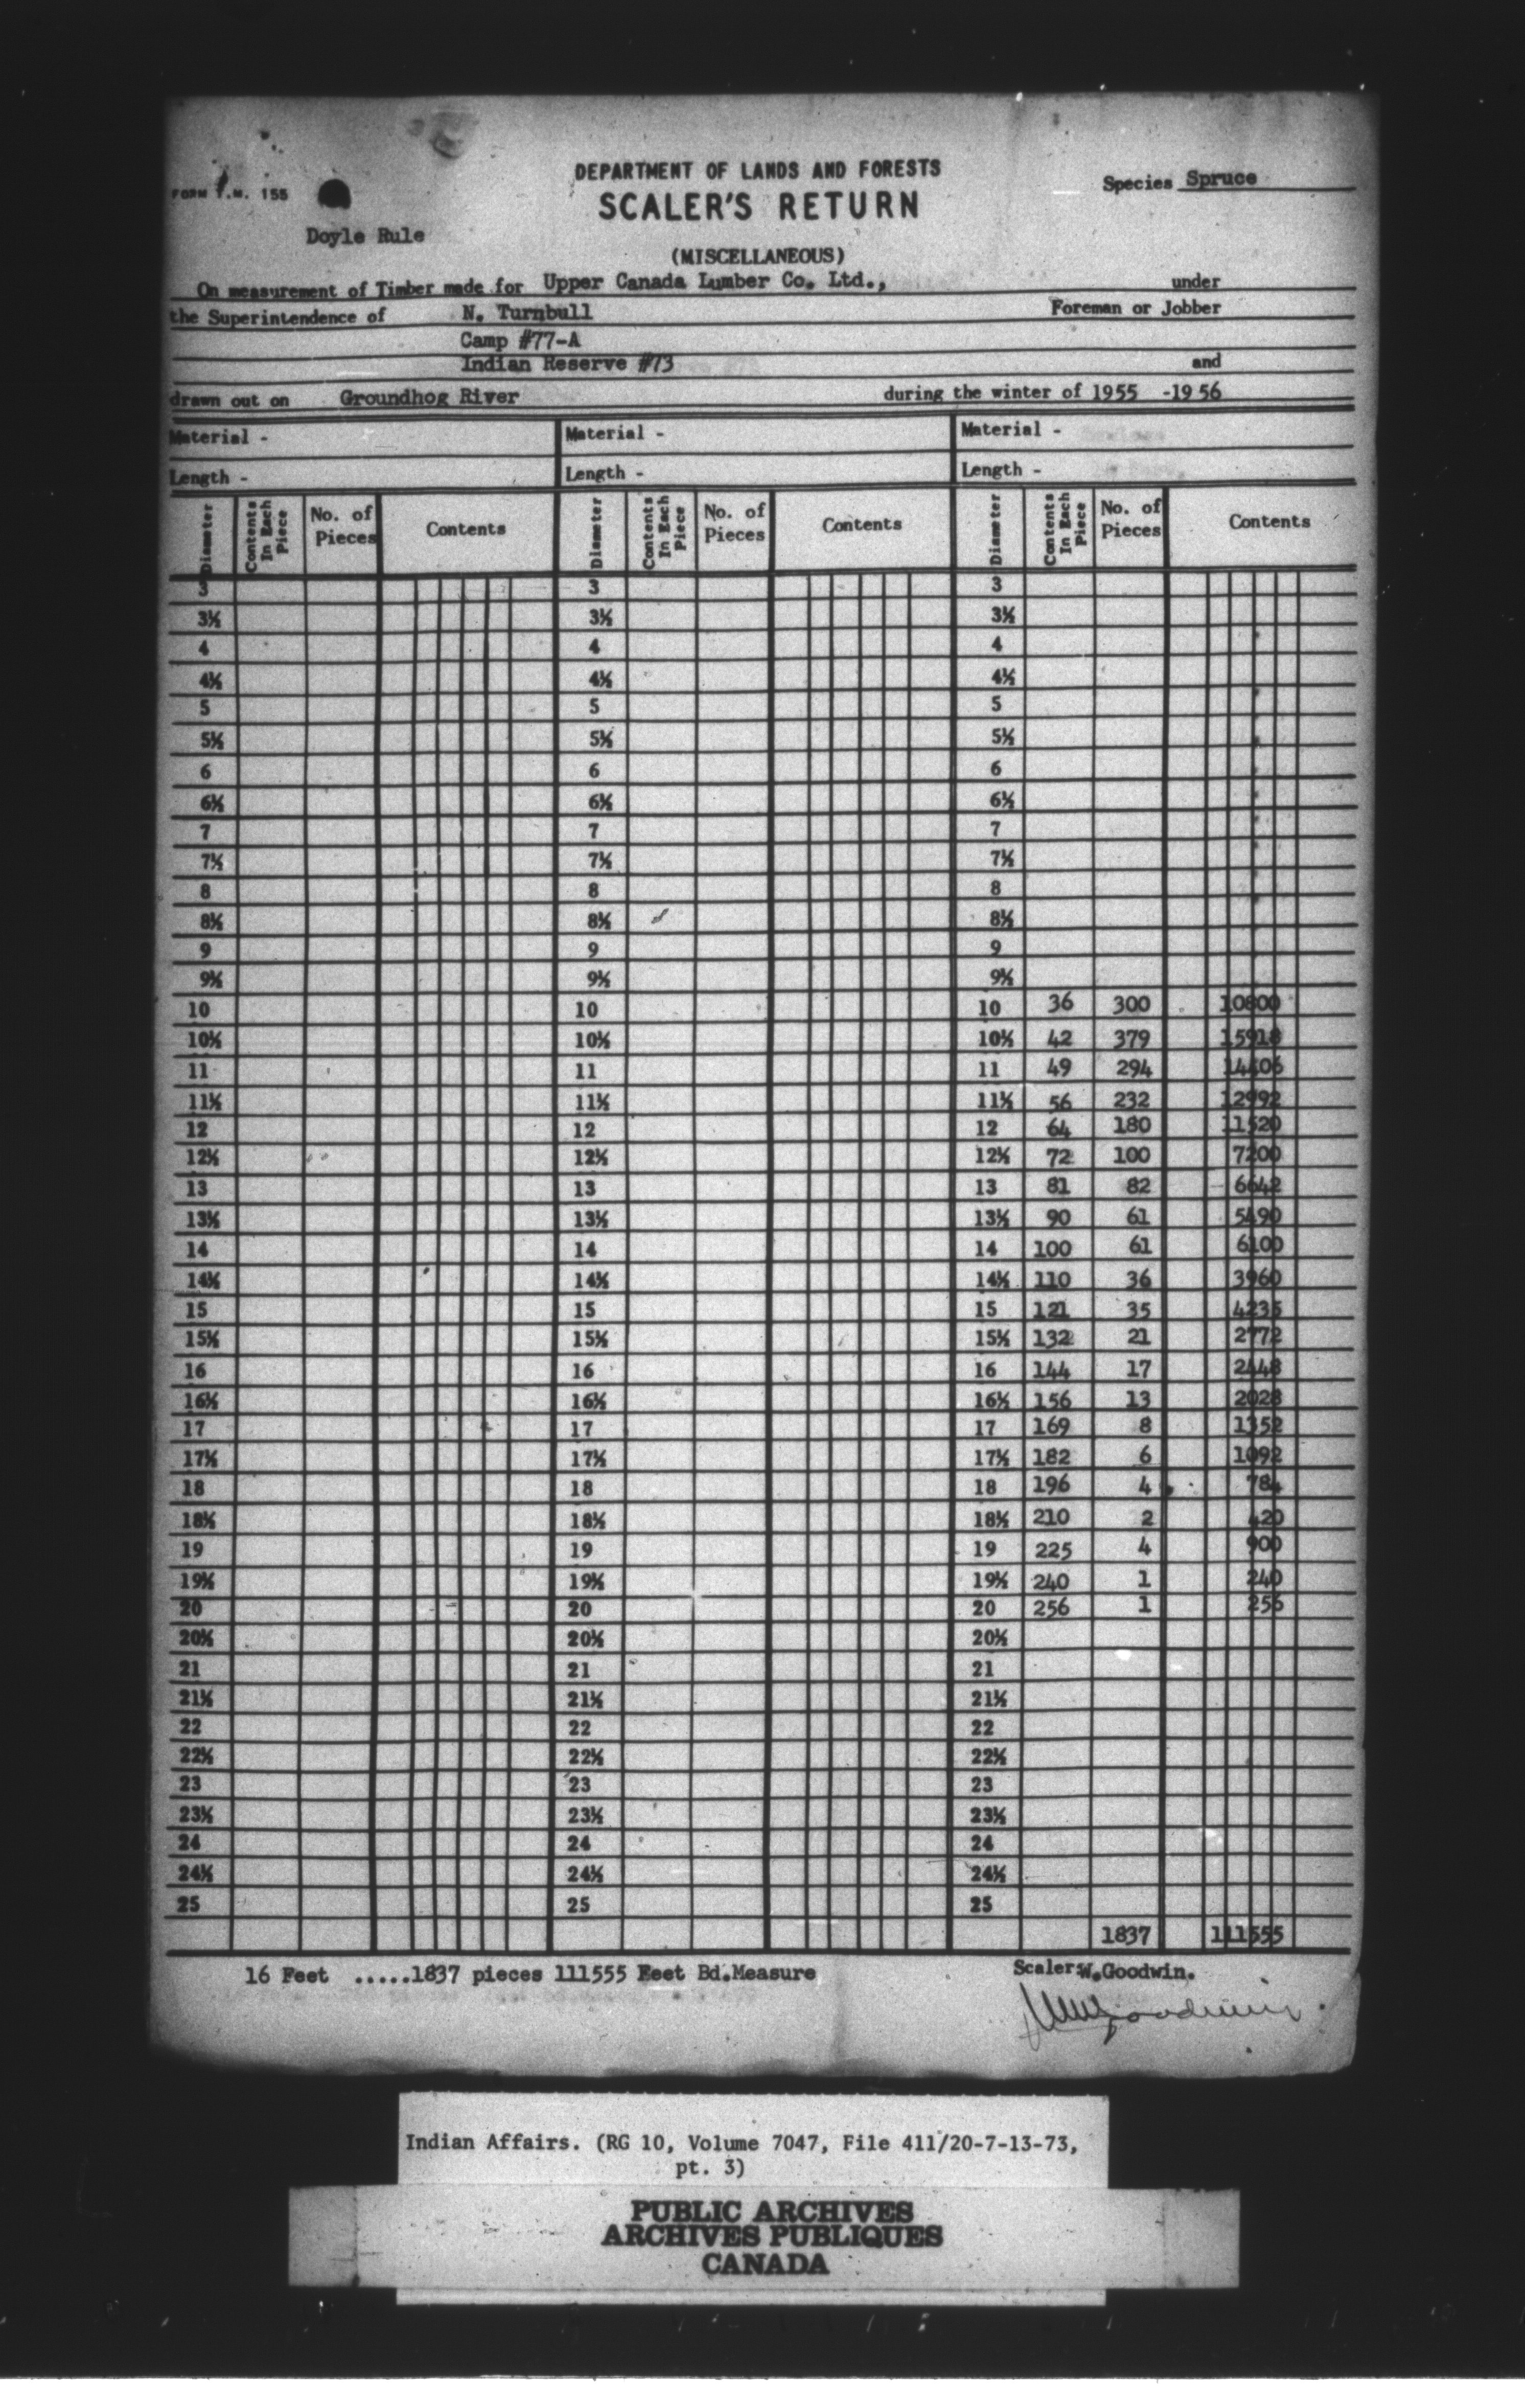 DEPARTMENT OF LANDS AND FORESTS
FORM T.M. 155
SCALER'S RETURN
Species Spruce
Doyle Rule
(MISCELLANEOUS)
On measurement of Timber made for Upper Canada Lumber Co. Ltd., under
the Superintendence of N. Turnbull Foreman or Jobber
Camp #77-A
Indian Reserve #73 and
drawn out on Groundhog River during the winter of 1955 -1956
Material - Material - Material -
Length - Length - Length -
Diameter Contents In Each Piece No. of Pieces Contents Diameter Contents In Each Piece No. of Pieces Contents Diameter Contents In Each Piece No. of Pieces Contents
3 3 3
3½ 3½ 3½
4 4 4
4½ 4½ 4½
5 5 5
5½ 5½ 5½
6 6 6
6½ 6½ 6½
7 7 7
7½ 7½ 7½
8 8 8
8½ 8½ 8½
9 9 9
9½ 9½ 9½
10 10 10 36 300 10800
10½ 10½ 10½ 42 379 15918
11 11 11 49 294 14406
11½ 11½ 11½ 56 232 12992
12 12 12 64 180 11520
12½ 12½ 12½ 72 100 7200
13 13 13 81 82 6642
13½ 13½ 13½ 90 61 5490
14 14 14 100 61 6100
14½ 14½ 14½ 110 36 3960
15 15 15 121 35 4235
15½ 15½ 15½ 132 21 2772
16 16 16 144 17 2448
16½ 16½ 16½ 156 13 2028
17 17 17 169 8 1352
17½ 17½ 17½ 182 6 1092
18 18 18 196 4 784
18½ 18½ 18½ 210 2 420
19 19 19 225 4 900
19½ 19½ 19½ 240 1 240
20 20 20 256 1 256
20½ 20½ 20½
21 21 21
21½ 21½ 21½
22 22 22
22½ 22½ 22½
23 23 23
23½ 23½ 23½
24 24 24
24½ 24½ 24½
25 25 25
1837 111555
16 Feet .....1837 pieces 111555 Feet Bd.Measure Scaler:W.Goodwin.
WmGoodwin
Indian Affairs. (RG 10, Volume 7047, File 411/20-7-13-73,
pt. 3)
PUBLIC ARCHIVES
ARCHIVES PUBLIQUES
CANADA